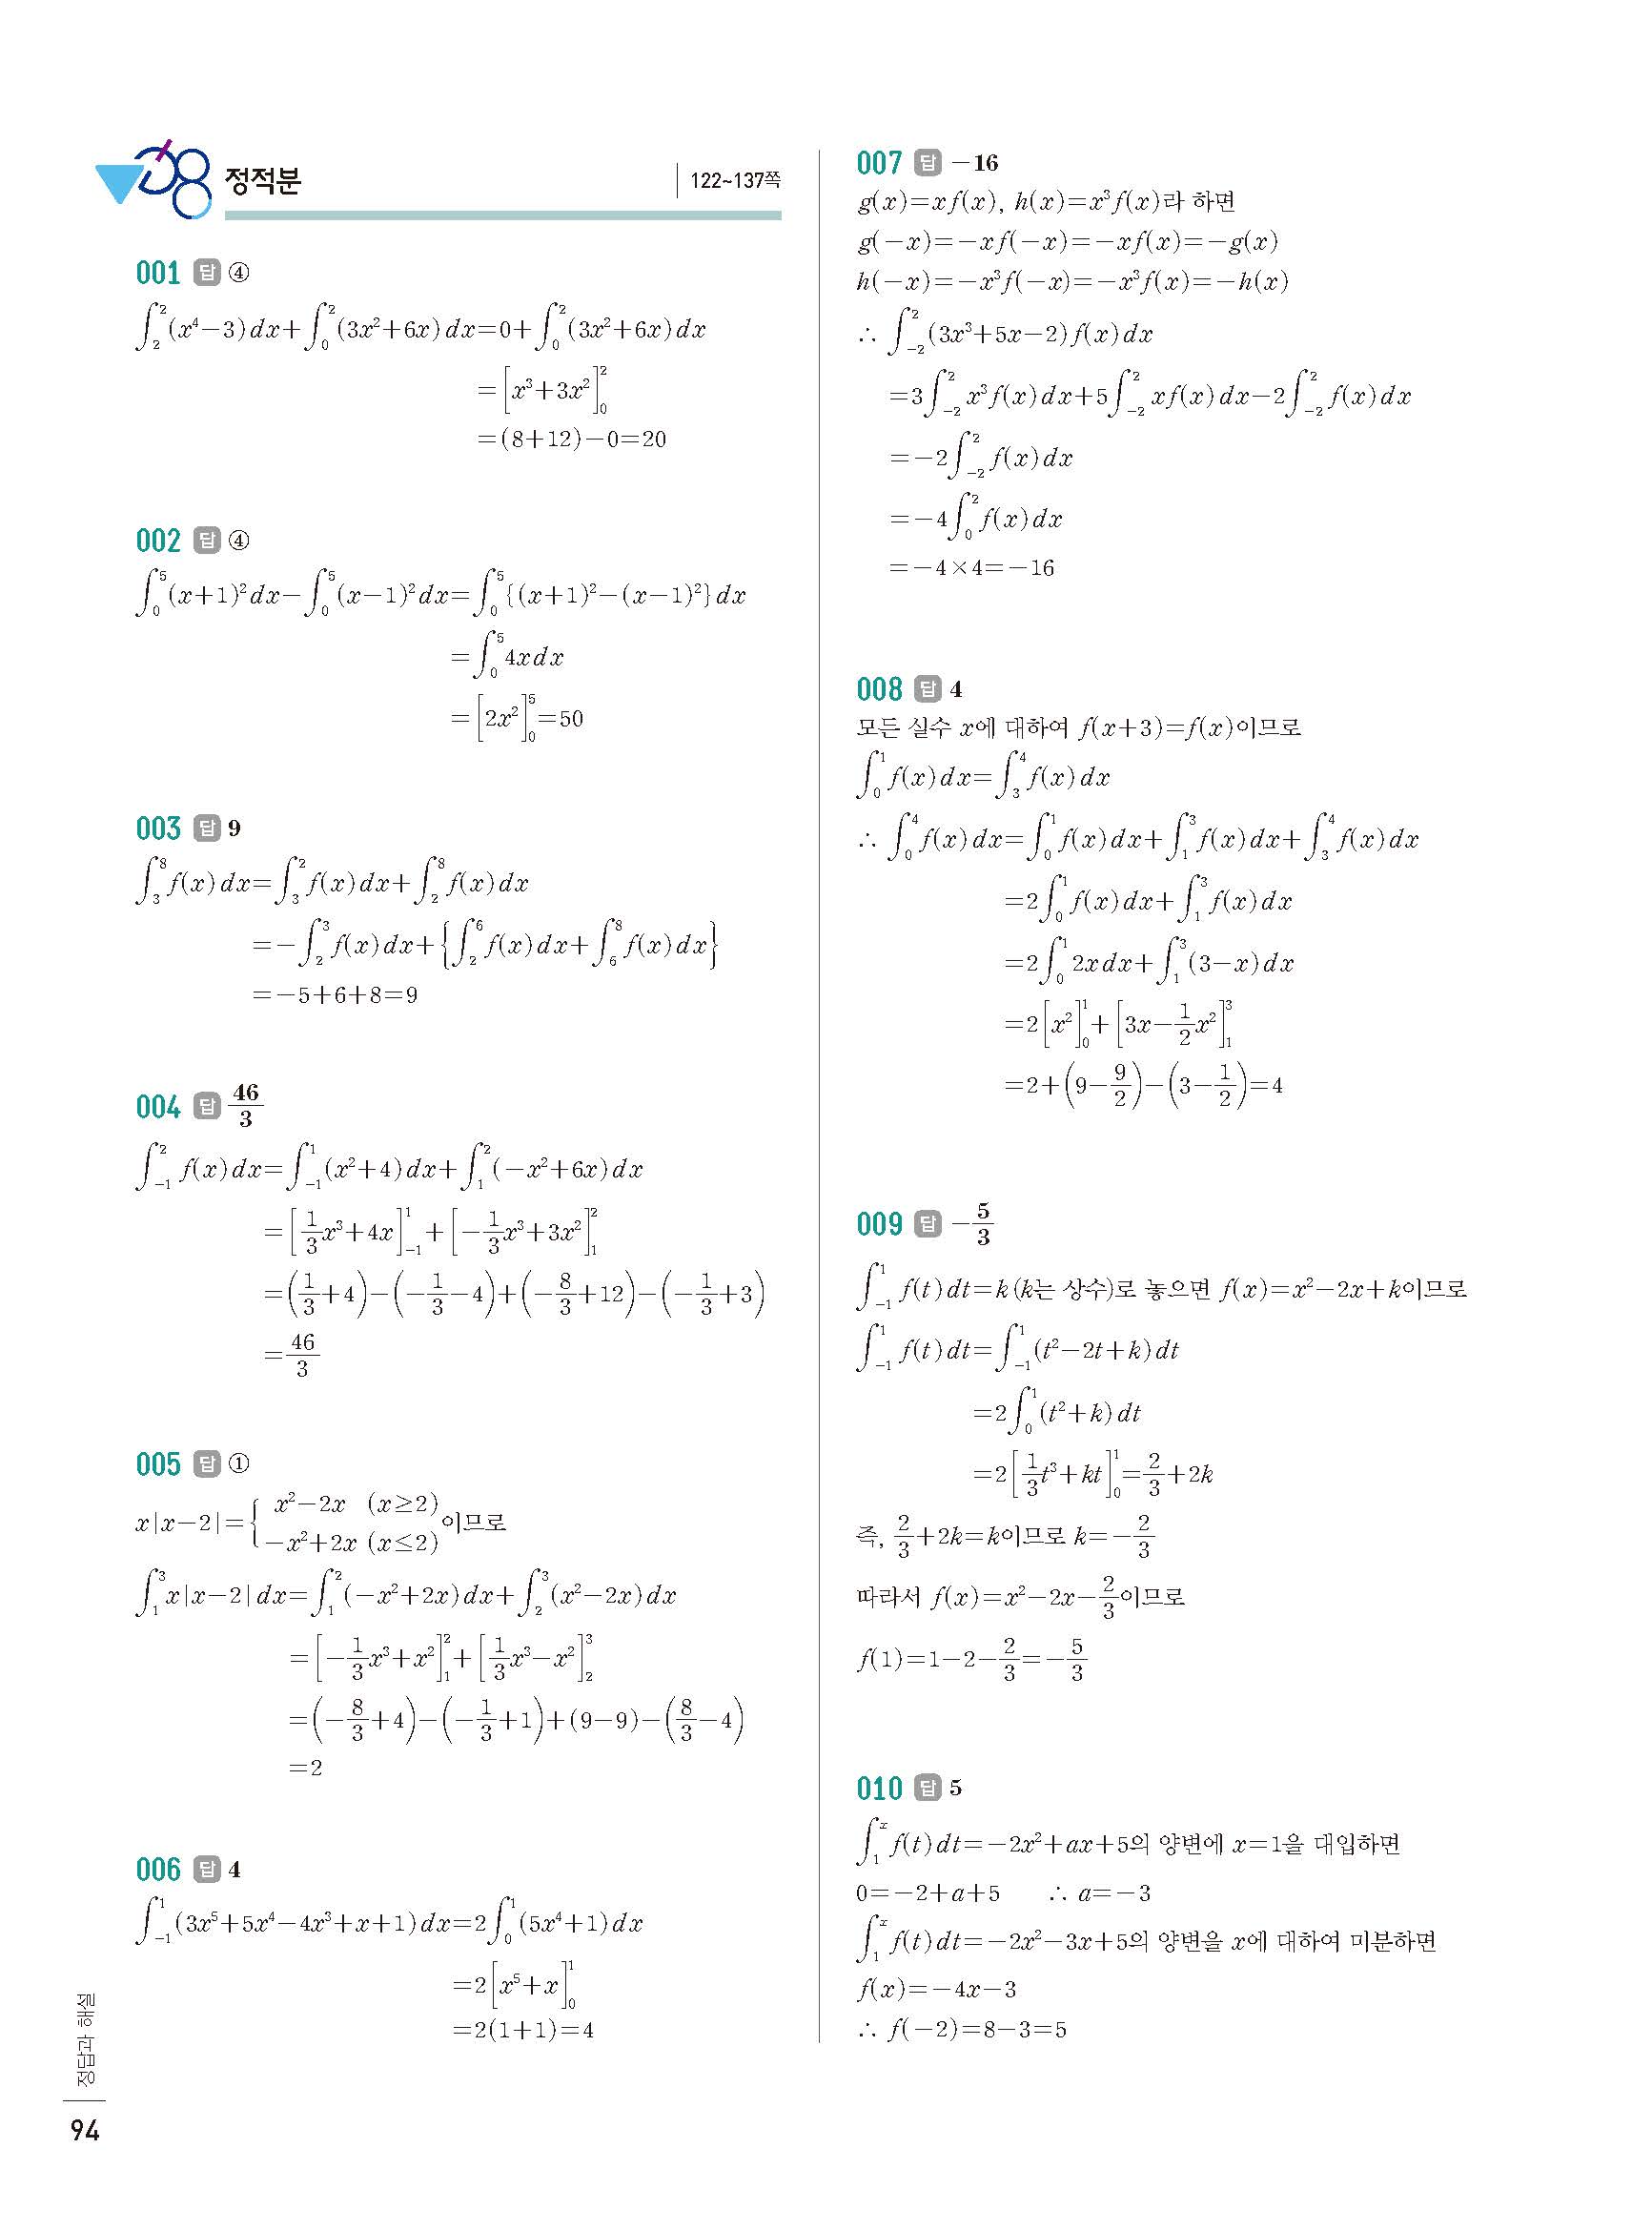 08 정적분
122~137쪽
001 답 ④
∫₂²(x⁴−3)dx+∫₀²(3x²+6x)dx=0+∫₀²(3x²+6x)dx
=[x³+3x²]₀²
=(8+12)−0=20
002 답 ④
∫₀⁵(x+1)²dx−∫₀⁵(x−1)²dx=∫₀⁵{(x+1)²−(x−1)²}dx
=∫₀⁵4xdx
=[2x²]₀⁵=50
003 답 9
∫₃⁸f(x)dx=∫₃²f(x)dx+∫₂⁸f(x)dx
=−∫₂³f(x)dx+{∫₂⁶f(x)dx+∫₆⁸f(x)dx}
=−5+6+8=9
004 답 46/3
∫₋₁²f(x)dx=∫₋₁¹(x²+4)dx+∫₁²(−x²+6x)dx
=[1/3x³+4x]₋₁¹+[−1/3x³+3x²]₁²
=(1/3+4)−(−1/3−4)+(−8/3+12)−(−1/3+3)
=46/3
005 답 ①
x|x−2|={ x²−2x (x≥2)
−x²+2x (x≤2) 이므로
∫₁³x|x−2|dx=∫₁²(−x²+2x)dx+∫₂³(x²−2x)dx
=[−1/3x³+x²]₁²+[1/3x³−x²]₂³
=(−8/3+4)−(−1/3+1)+(9−9)−(8/3−4)
=2
006 답 4
∫₋₁¹(3x⁵+5x⁴−4x³+x+1)dx=2∫₀¹(5x⁴+1)dx
=2[x⁵+x]₀¹
=2(1+1)=4
007 답 −16
g(x)=xf(x), h(x)=x³f(x)라 하면
g(−x)=−xf(−x)=−xf(x)=−g(x)
h(−x)=−x³f(−x)=−x³f(x)=−h(x)
∴ ∫₋₂²(3x³+5x−2)f(x)dx
=3∫₋₂²x³f(x)dx+5∫₋₂²xf(x)dx−2∫₋₂²f(x)dx
=−2∫₋₂²f(x)dx
=−4∫₀²f(x)dx
=−4×4=−16
008 답 4
모든 실수 x에 대하여 f(x+3)=f(x)이므로
∫₀¹f(x)dx=∫₃⁴f(x)dx
∴ ∫₀⁴f(x)dx=∫₀¹f(x)dx+∫₁³f(x)dx+∫₃⁴f(x)dx
=2∫₀¹f(x)dx+∫₁³f(x)dx
=2∫₀¹2xdx+∫₁³(3−x)dx
=2[x²]₀¹+[3x−1/2x²]₁³
=2+(9−9/2)−(3−1/2)=4
009 답 −5/3
∫₋₁¹f(t)dt=k(k는 상수)로 놓으면 f(x)=x²−2x+k이므로
∫₋₁¹f(t)dt=∫₋₁¹(t²−2t+k)dt
=2∫₀¹(t²+k)dt
=2[1/3t³+kt]₀¹=2/3+2k
즉, 2/3+2k=k이므로 k=−2/3
따라서 f(x)=x²−2x−2/3이므로
f(1)=1−2−2/3=−5/3
010 답 5
∫₁ˣf(t)dt=−2x²+ax+5의 양변에 x=1을 대입하면
0=−2+a+5 ∴ a=−3
∫₁ˣf(t)dt=−2x²−3x+5의 양변을 x에 대하여 미분하면
f(x)=−4x−3
∴ f(−2)=8−3=5
정답과 해설
94